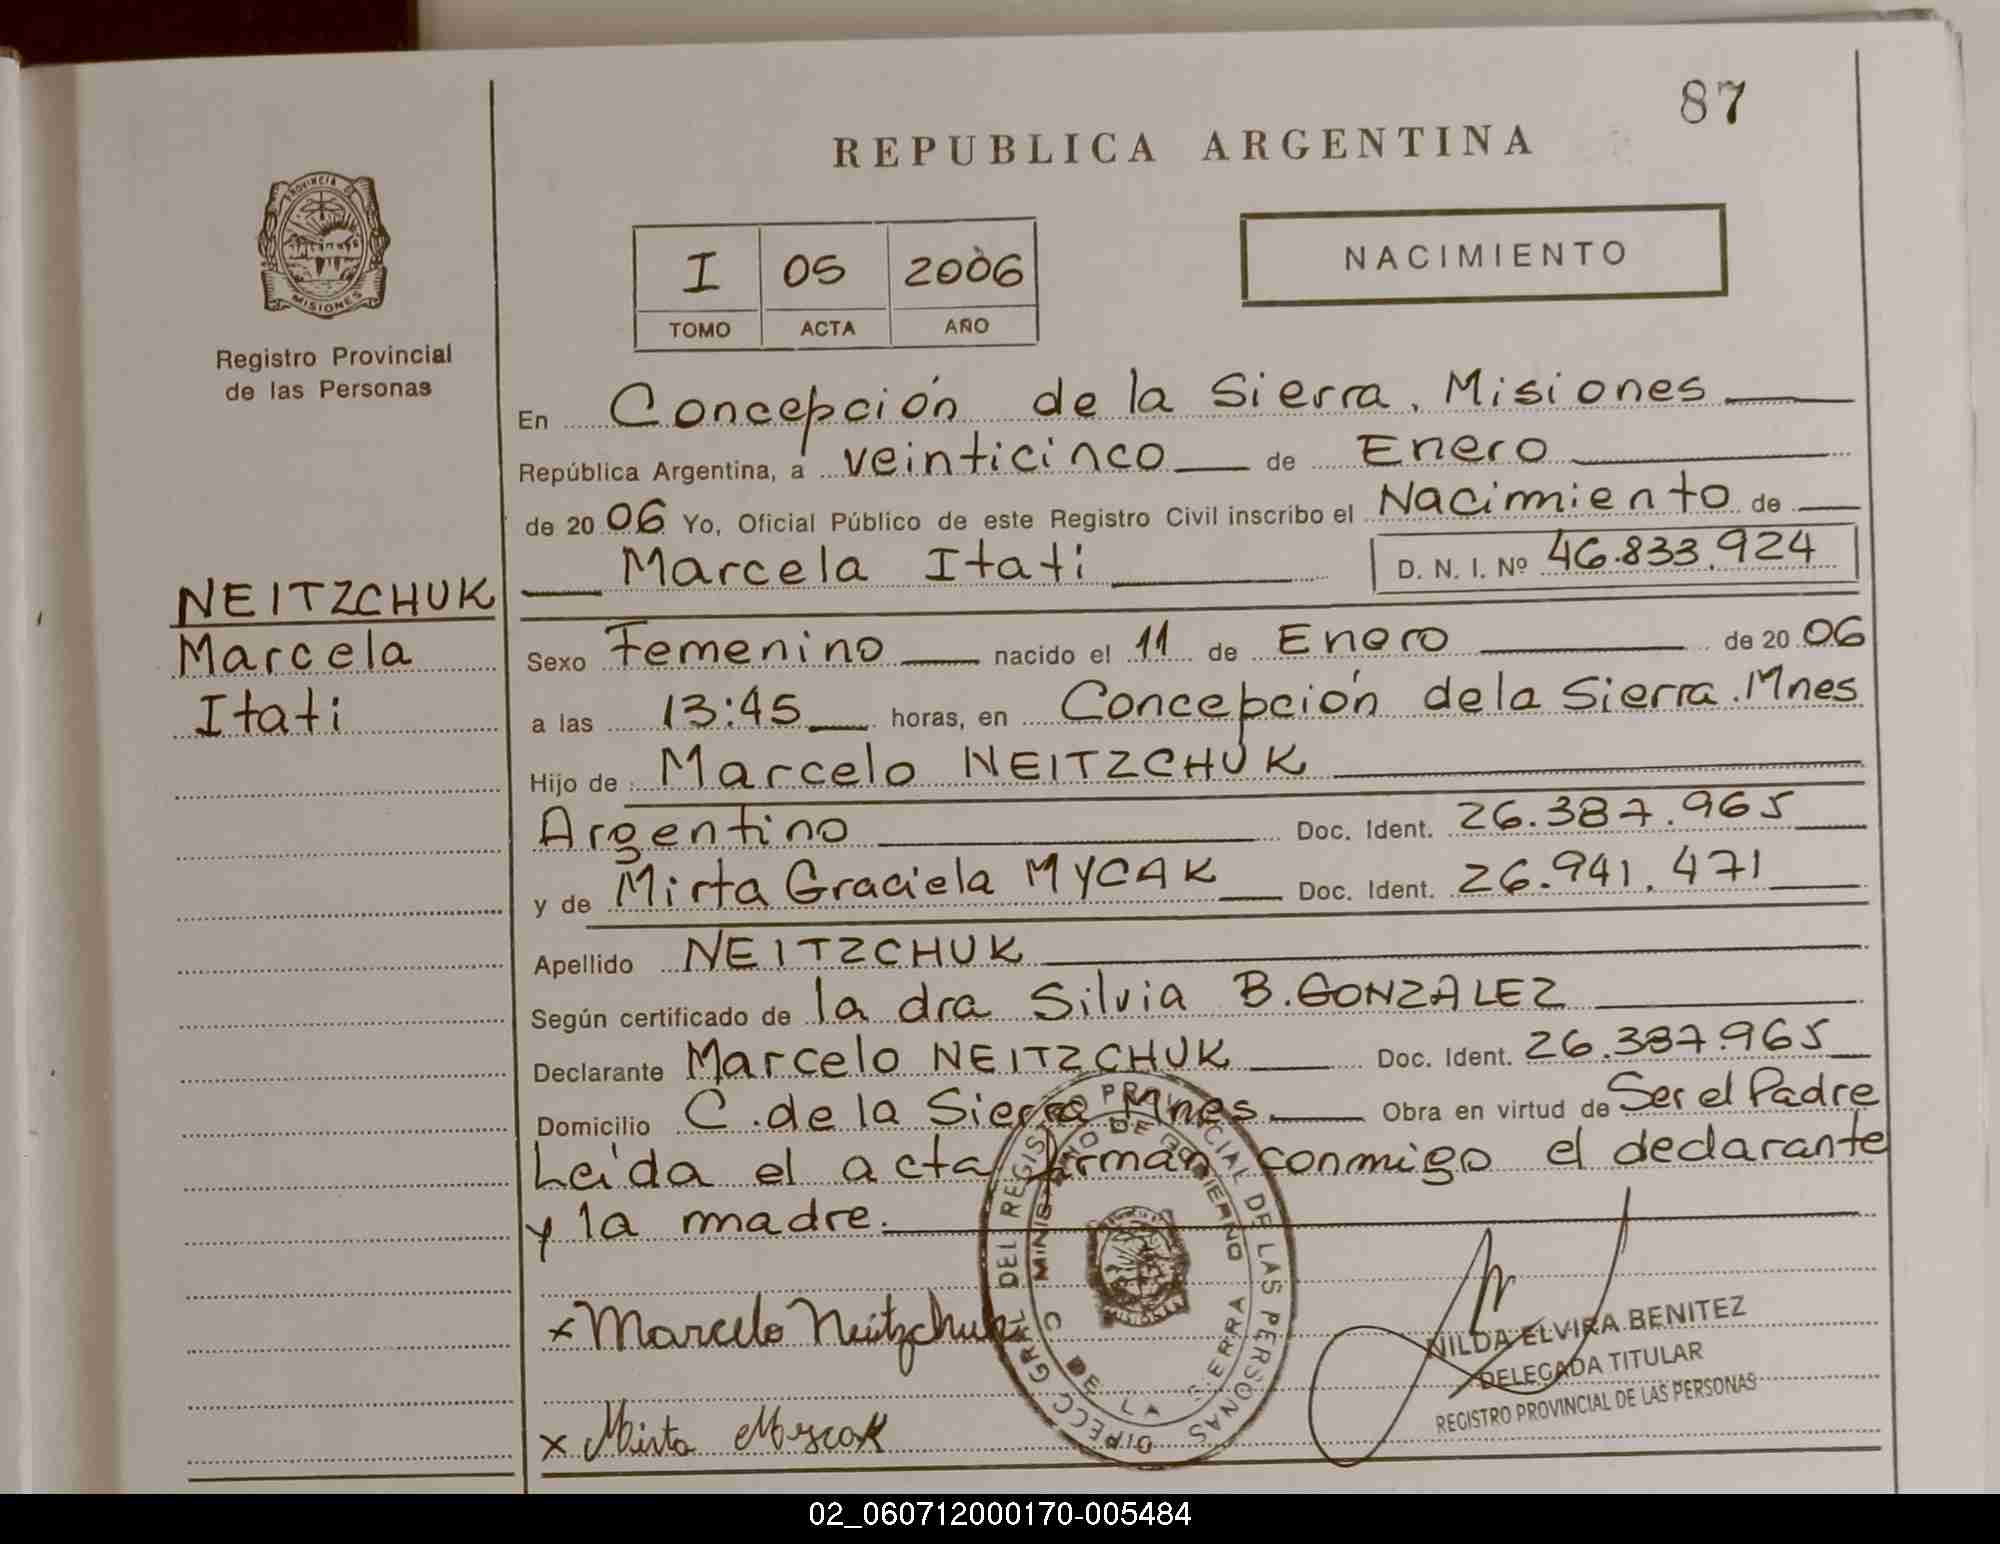 87
REPUBLICA ARGENTINA
PROVINCIA DE
MISIONES
Registro Provincial
de las Personas
I 05 2006
TOMO ACTA AÑO
NACIMIENTO
NEITZCHUK
Marcela
Itati
En Concepción de la Sierra. Misiones
República Argentina, a veinticinco de Enero
de 2006 Yo, Oficial Público de este Registro Civil inscribo el Nacimiento de
Marcela Itati D. N. I. Nº 46.833.924
Sexo Femenino nacido el 11 de Enero de 2006
a las 13:45 horas, en Concepción de la Sierra. Mnes
Hijo de Marcelo NEITZCHUK
Argentino Doc. Ident. 26.387.965
y de Mirta Graciela MYCAK Doc. Ident. 26.941.471
Apellido NEITZCHUK
Según certificado de la dra Silvia B. GONZALEZ
Declarante Marcelo NEITZCHUK Doc. Ident. 26.387.965
Domicilio C. de la Sierra Mnes. Obra en virtud de Ser el Padre
Leída el acta firman conmigo el declarante
y la madre.
x Marcelo Neitzchuk
x Mirta Mycak
DIRECC GRAL DEL REGISTRO PROVINCIAL DE LAS PERSONAS
DE GOBIERNO
C DE LA SIERRA
NILDA ELVIRA BENITEZ
DELEGADA TITULAR
REGISTRO PROVINCIAL DE LAS PERSONAS
02_060712000170-005484